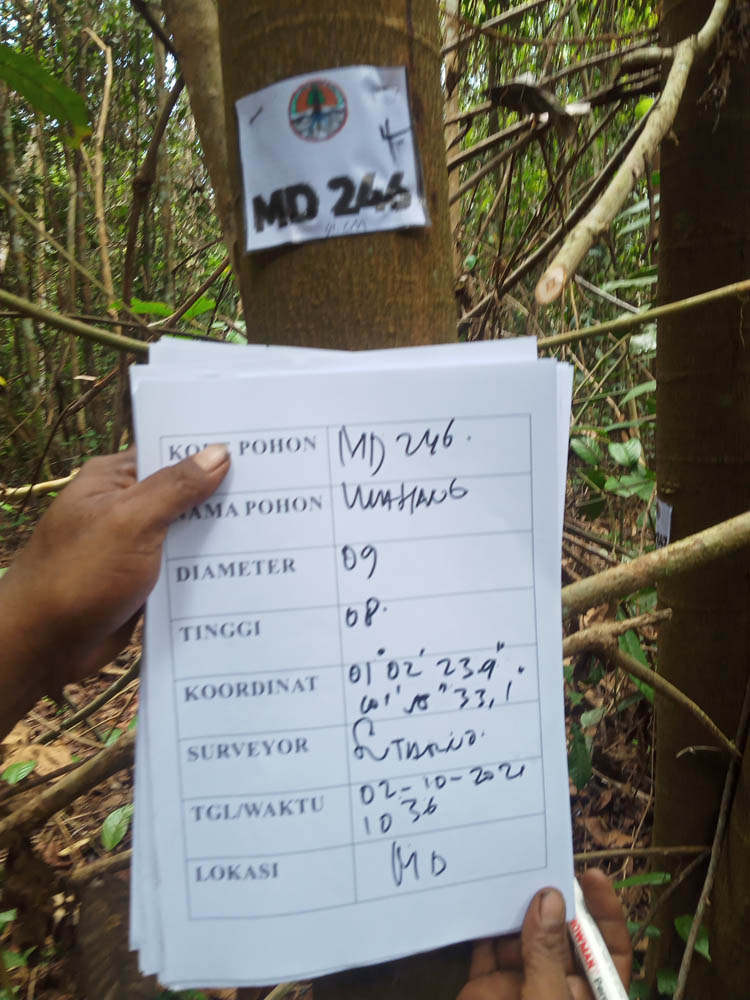 MD 246
KODE POHON MD 246.
NAMA POHON
DIAMETER 09
TINGGI 08.
KOORDINAT 01° 02' 23.9"
33,1
SURVEYOR
TGL/WAKTU 02-10-2021
10 36
LOKASI MD